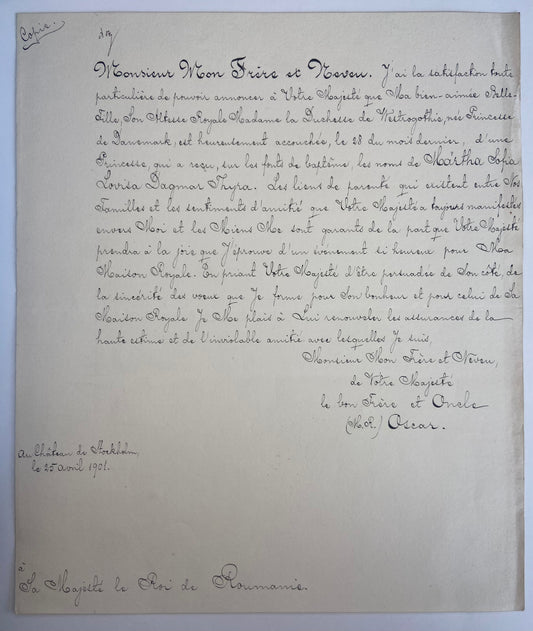 Copie.
Monsieur Mon Frère et Neveu. J'ai la satisfaction toute
particulière de pouvoir annoncer à Votre Majesté que Ma bien-aimée Belle-
Fille, Son Altesse Royale Madame la Duchesse de Westrogothie, née Princesse
de Danemark, est heureusement accouchée, le 28 du mois dernier, d'une
Princesse, qui a reçu, sur les fonts de baptême, les noms de Märtha Sofia
Lovisa Dagmar Thyra. Les liens de parenté qui existent entre Nos
Familles et les sentiments d'amitié que Votre Majesté a toujours manifestés
envers Moi et les Miens Me sont garants de la part que Votre Majesté
prendra à la joie que J'éprouve d'un événement si heureux pour Ma
Maison Royale. En priant Votre Majesté d'être persuadée de Son côté, de
la sincérité des voeux que Je forme pour Son bonheur et pour celui de Sa
Maison Royale Je Me plais à Lui renouveler les assurances de la
haute estime et de l'inviolable amitié avec lesquelles Je suis,
Monsieur Mon Frère et Neveu,
de Votre Majesté
le bon Frère et Oncle
Oscar.
Au Château de Stockholm,
le 25 avril 1901.
à
Sa Majesté le Roi de Roumanie.